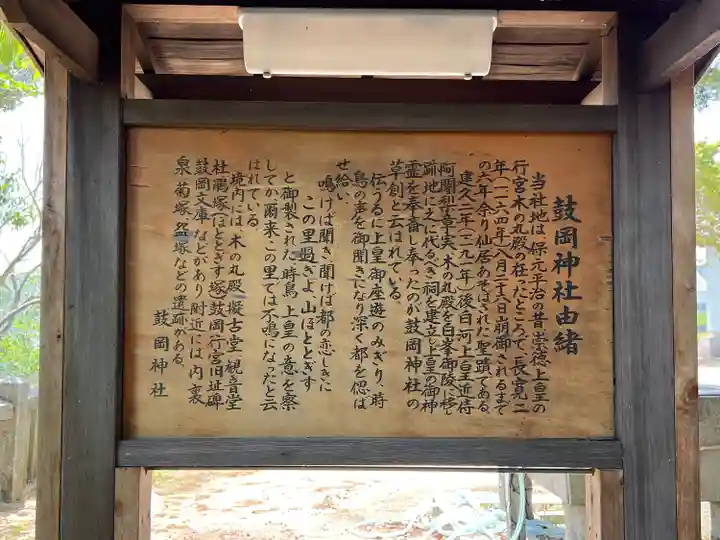 鼓岡神社由緒
当社地は、保元平治の昔、崇徳上皇の
行宮木の丸殿の在ったところで、長寛二
年(一一六四年)八月二十六日崩御されるまで
の六年余り仙居あそばされた聖蹟である。
建久二年(一一九一年)後白河上皇近侍
阿闍梨章実、木の丸殿を白峯御陵に移し
跡地に之に代るべき祠を建立し、上皇の御神
霊を奉斎し奉ったのが鼓岡神社の
草創と云はれている。
伝うるに上皇御座遊のみぎり、時
鳥の声を御聞きになり深く都を偲ば
せ給い、
鳴けば聞き聞けば都の恋しきに
この里過ぎよ、山ほととぎす
と御製された 時鳥 上皇の意を察
してか爾来、この里では不鳴になったと云
はれている。
境内には、木の丸殿、擬古堂、観音堂
杜鵑塚(ほととぎす塚)鼓岡行宮旧址碑
鼓岡文庫などがあり附近には、内裏
泉、菊塚、盌塚などの遺跡がある。
鼓岡神社